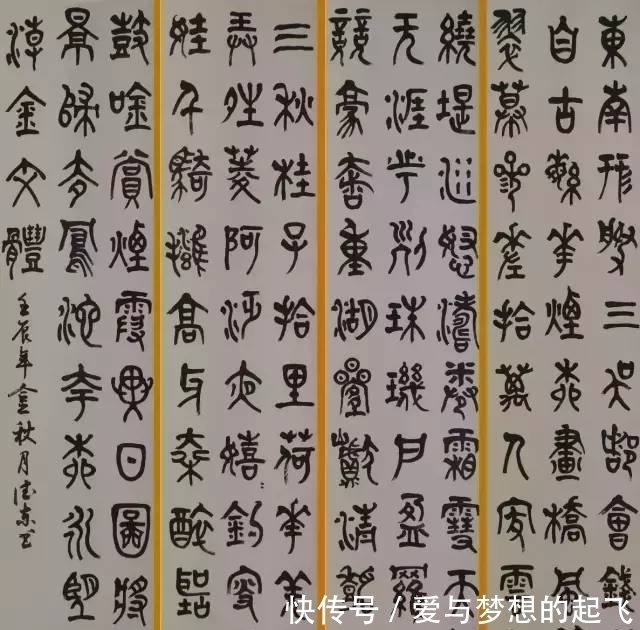 東南形勝三吳都會錢
自古繁華煙柳畫橋風
翠幕參差拾萬人家雲
繞堤沙怒濤卷霜雪天
无涯市列珠璣户盈羅
競豪奢重湖疊巘清嘉
三秋桂子拾里荷華羌
弄晴菱歌泛夜嬉釣叟
娃千騎擁高牙乘醉聽
鼓吟賞煙霞異日圖將
景歸去鳳池夸柳永望
潮金文體
壬辰年金秋月德东书
快传号 / 爱与梦想的起飞